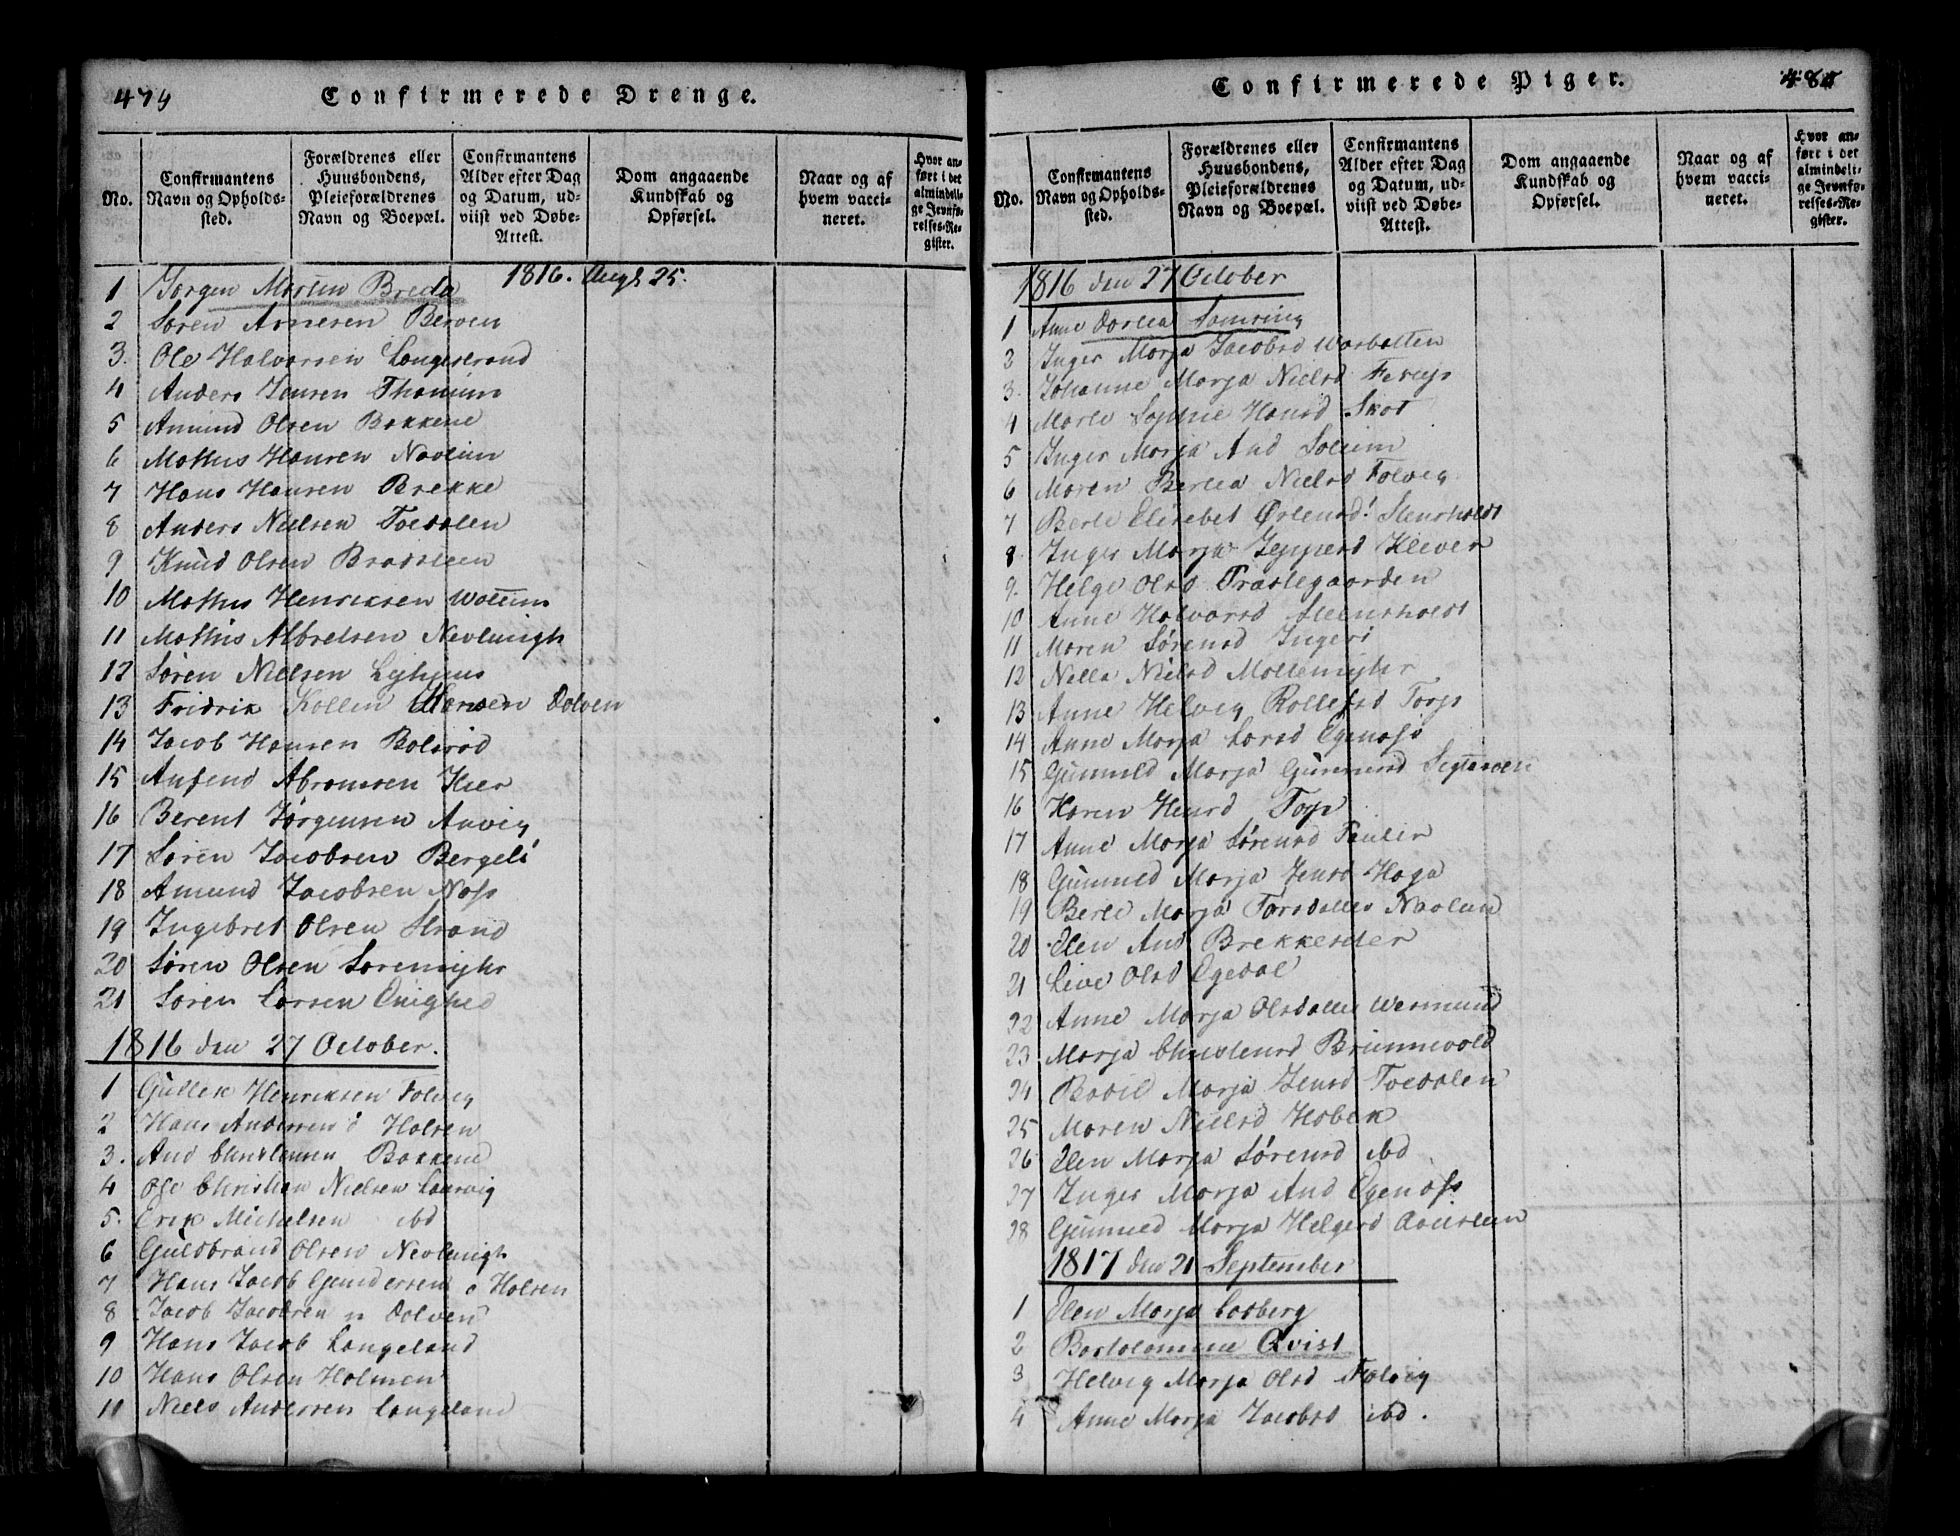 479
Confirmerede Drenge.
No.
Confirmantens Navn og Opholds-sted.
Forældrenes eller Huusbondens, Pleieforældrenes Navn og Boepæl.
Confirmantens Alder efter Dag og Datum, ud-viist ved Døbe-Attest.
Dom angaaende Kundskab og Opførsel.
Naar og af hvem vacci-neret.
Hvor an-ført i det almindeli-ge Jevnfø-relses-Re-gister.
1816. Augt 25.
1 Jørgen Morten Breda
2 Søren Arnesen Berven
3. Ole Halvorsen Langestrand
4 Anders Jensen Thanum
5 Amund Olsen Bakkene
6 Mathis Hansen Navlum
7 Hans Hansen Brekke
8 Anders Nielsen Foedalen
9 Knud Olsen Bradsteen
10 Mathis Henriksen
11 Mathis Albretsen Nevlungh
12 Søren Nielsen
13 Fridrik Kollen Hansen Dolven
14 Jacob Hansen Bolsrød
15 Anfend Abramsen Kier
16 Berent Jørgensen Anvig
17 Søren Jacobsen Bergeli
18 Amund Jacobsen Næss
19 Ingebret Olsen Strand
20 Søren Olsen
21 Søren Larsen Enighed
1816 den 27 October.
1 Gullek Henriksen Folvig
2 Hans Andersen Holsen
3. And Christensen Bakkene
4 Ole Christian Nielsen Laurvig
5. Erik Michelsen ibd
6 Guldbrand Olsen Nevlungh
7 Hans Jacob Gundersen Holsen
8 Jacob Jacobsen Dolven
9 Hans Jacob Langeland
10 Hans Olsen Holmen
11 Niels Andersen Langeland
Confirmerede Piger.
No.
Confirmantens Navn og Opholds-sted.
Forældrenes eller Huusbondens, Pleieforældrenes Navn og Boepæl.
Confirmantens Alder efter Dag og Datum, ud-viist ved Døbe-Attest.
Dom angaaende Kundskab og Opførsel.
Naar og af hvem vacci-neret.
Hvor an-ført i det almindeli-ge Jevnfø-relses-Re-gister.
1816 den 27 October
1 Anne Dortea
2 Inger Marja Jacobsd
3. Johanne Marja Nielsd
4 Marte Sophie Hansd Skot
5 Inger Marja And Solum
6 Maren Bertea Nielsd Folvig
7 Berte Elisebet Stensholdt
8. Inger Marja Jeppesd Klever
9. Helge Olsd Præstegaarden
10 Anne Halvorsd Steensholdt
11 Maren Sørensd
12 Nella Nielsd
13 Anne Helvig Rollefsd Torp
14 Anne Marja Larsd Egenæss
15 Gunnild Marja Gunnersd
16 Karen Hensd Torp
17 Anne Marja Sørensd
18 Gunnild Marja Jensd Haga
19 Berte Marja Navlum
20 Elen And Brekkeseter
21 Live Olsd Egedal
22 Anne Marja Olsdatter Wermund
23 Marja Christensd Brunnevold
24 Bodil Marja Jensd Foedalen
25 Maren Nielsd Hobek
26 Elen Marja Sørensd ibd
27 Inger Marja And Egenæss
28 Gunnild Marja Helgesd
1817 den 21 September
1 Elen Marja Carlberg
2 Bartolomine Qvist
3 Helvig Marja Olsd Folvig
4 Anne Marja Jacobsd ibd.